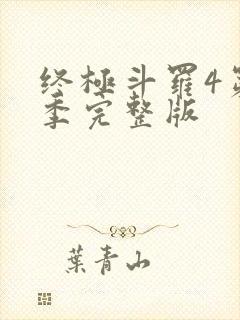 终極斗羅4第
季完整版
葉青山